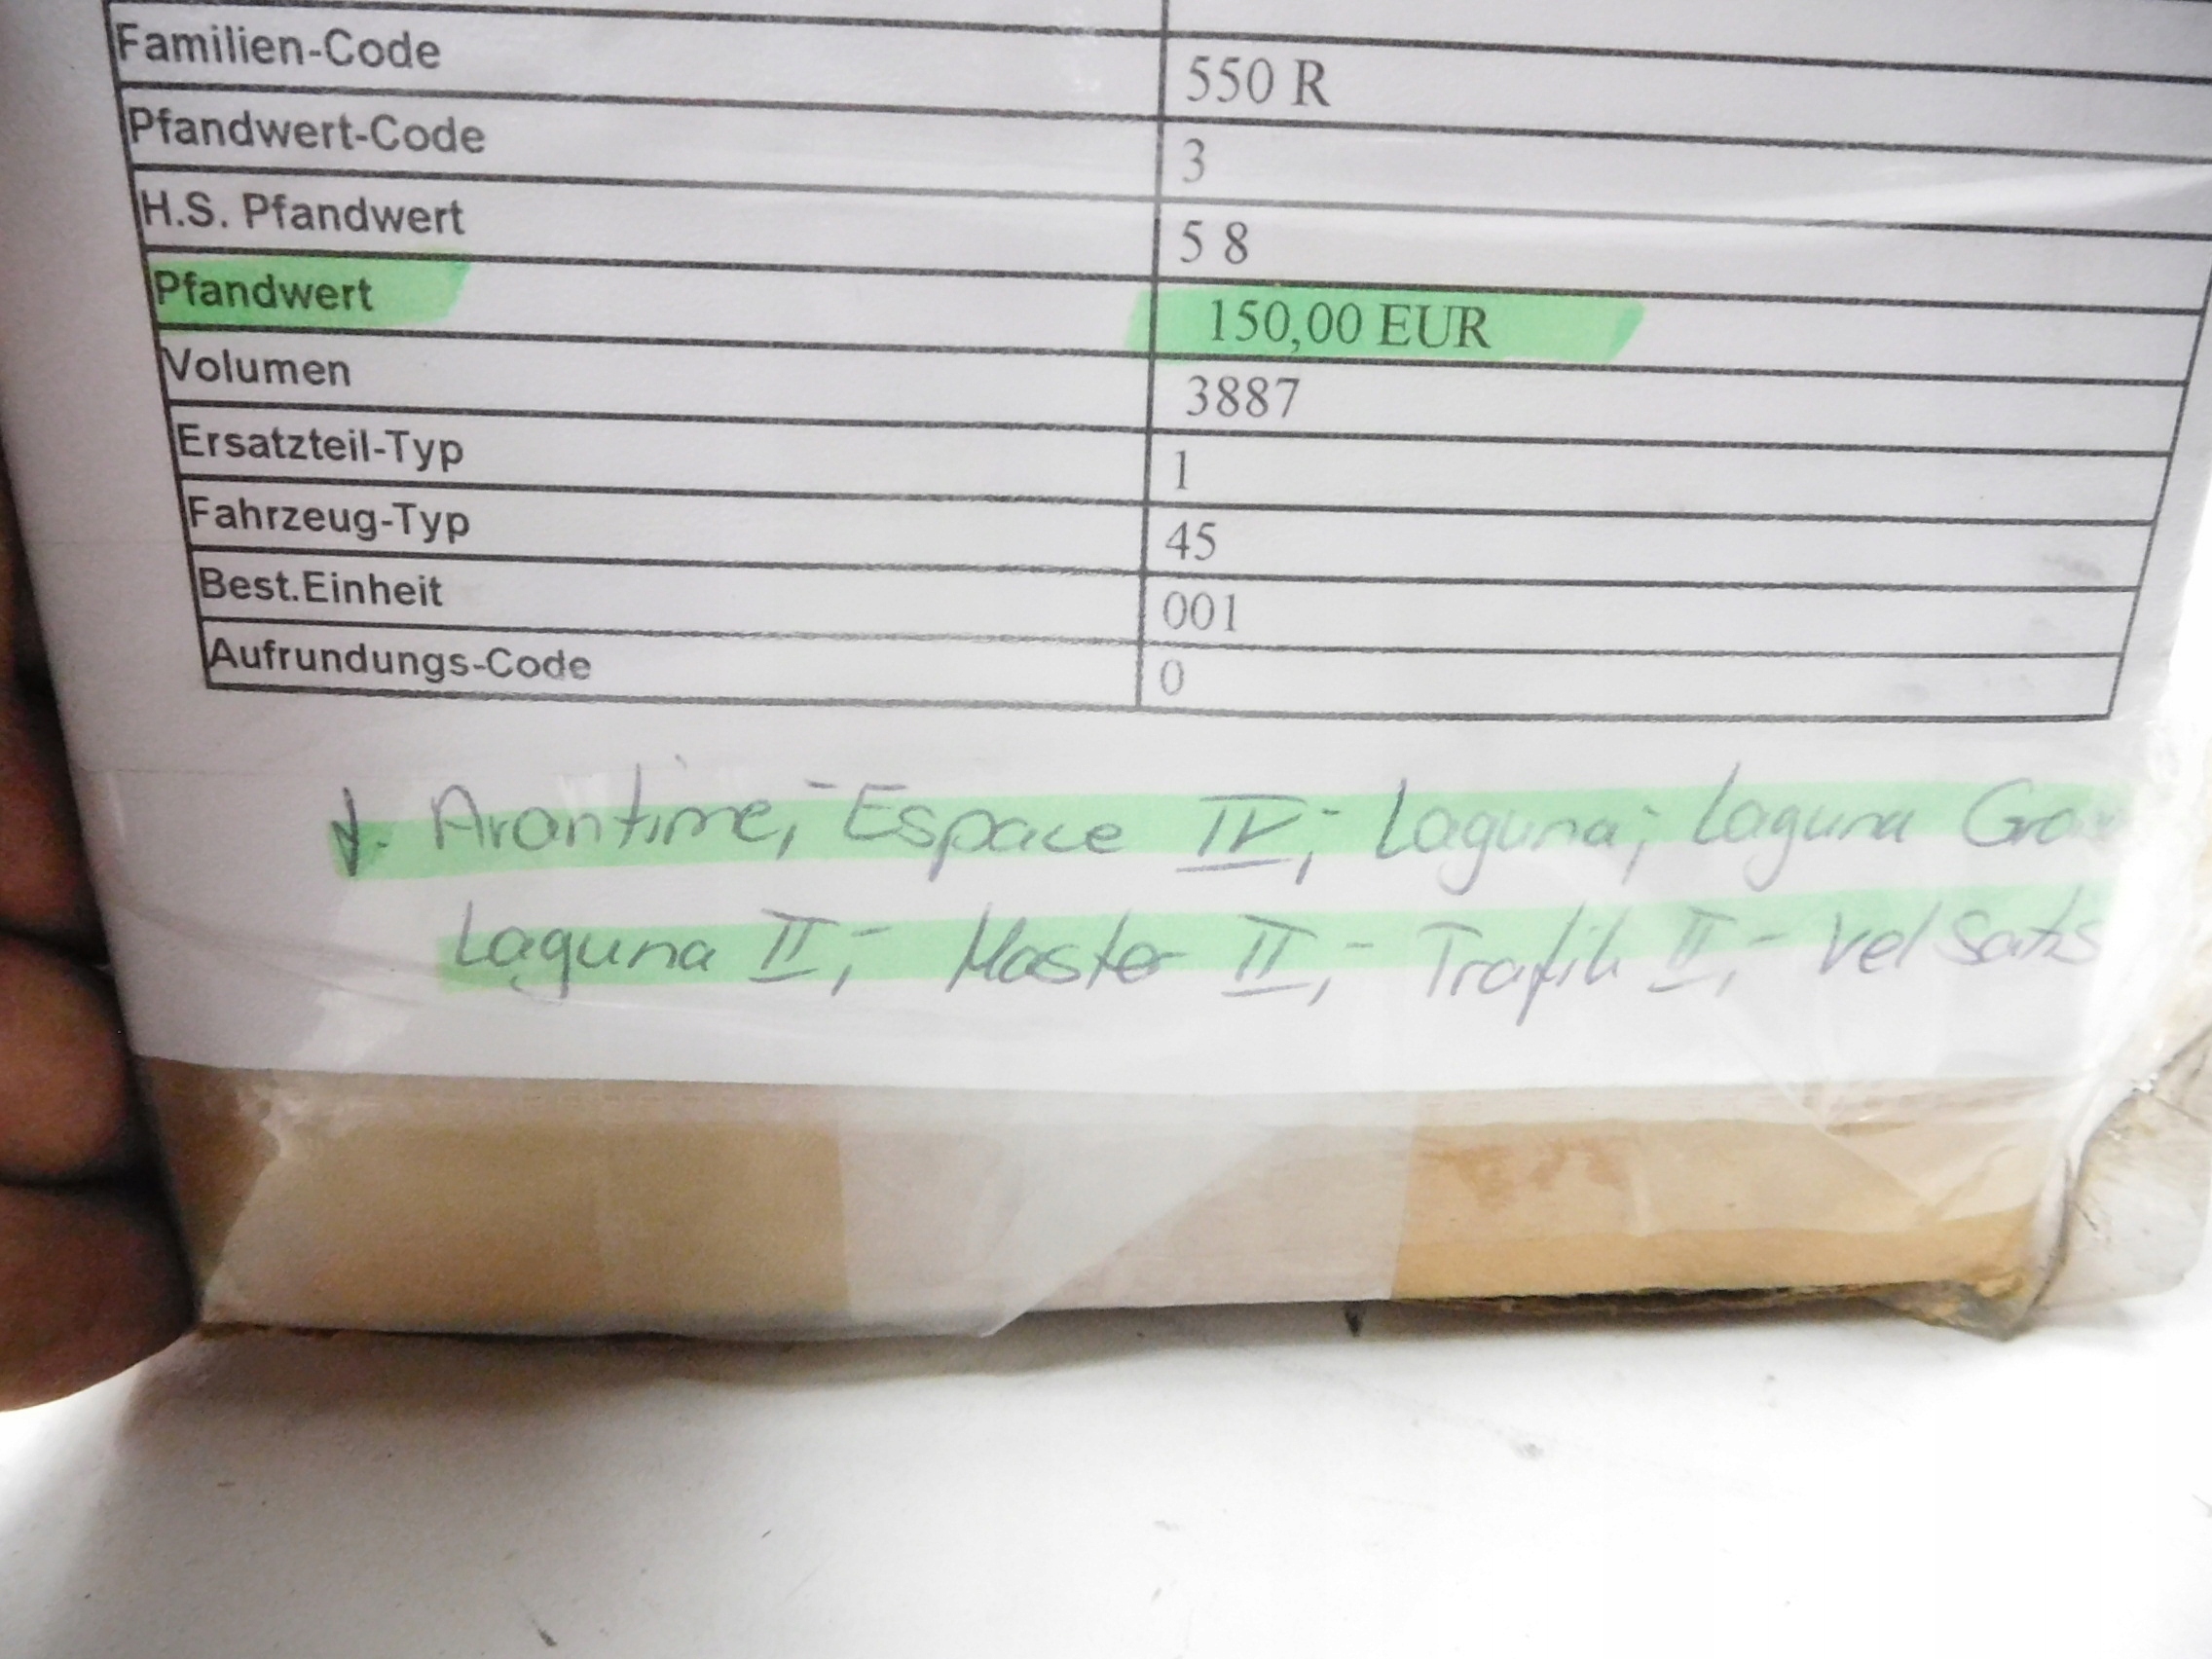 Familien-Code 550 R
Pfandwert-Code 3
H.S. Pfandwert 5 8
Pfandwert 150,00 EUR
Volumen 3887
Ersatzteil-Typ 1
Fahrzeug-Typ 45
Best.Einheit 001
Aufrundungs-Code 0
f. Avantime, - Espace IV, - Laguna, - Laguna
Laguna II, - Master II, - Trafik II, - Vel Satis